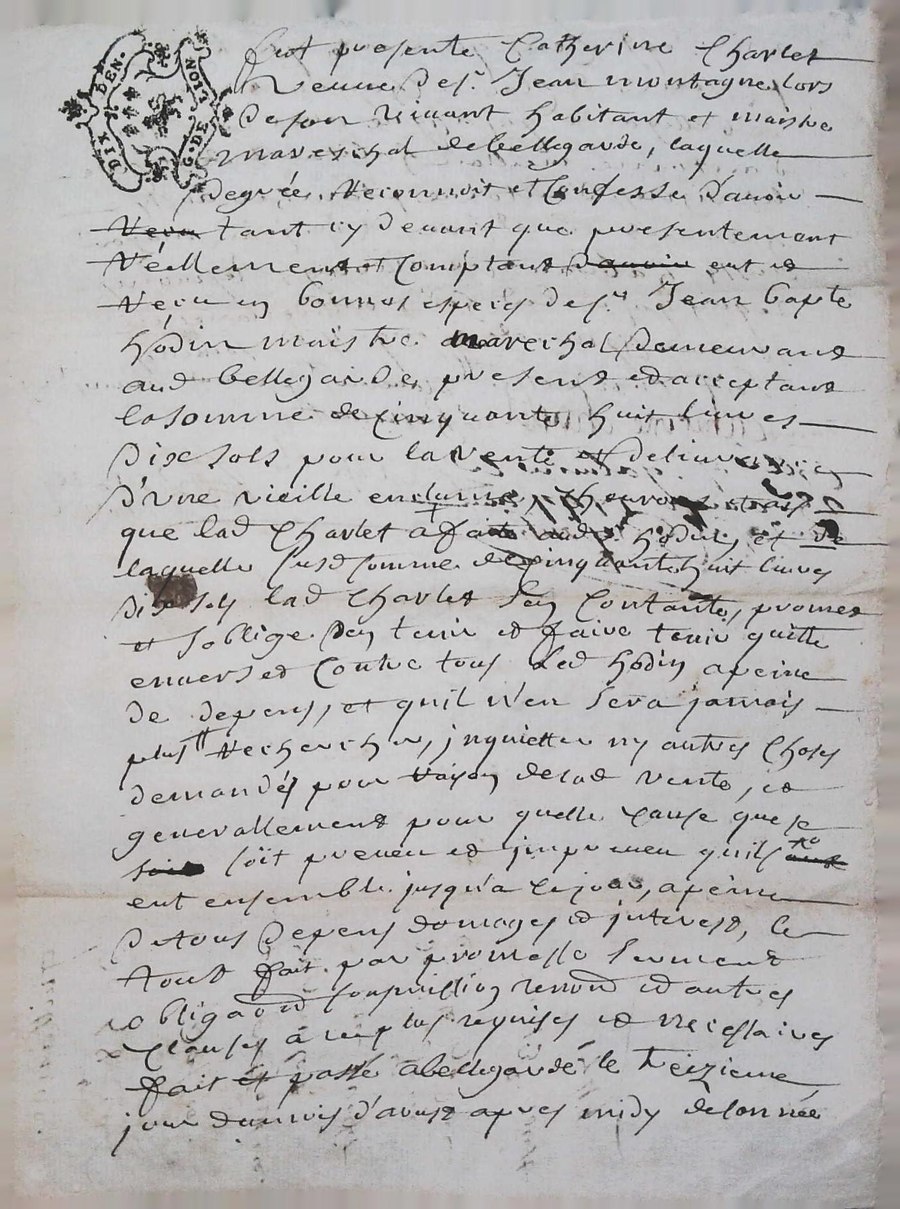 DIX DEN. G. DE LION
fut presente Catherine Charlet
Veuve de sr. Jean montagne lors
de son vivant habitant et maistre
mareschal de bellegarde, laquelle
de grée reconnoit et Confesse d'avoir
receu tant cy devant que presentement
réellement et Comptant d'avoir eut et
receu en bonnes especes de sr. Jean bapte
hodin maistre marechal demeurant
aud bellegarde, present et acceptant
la somme de cinquante huit livres
dix sols pour la vente et delivrance
d'une vieille enclume,
que lad Charlet a fait aud hodin, et de
laquelle susd somme de cinquante huit livres
dix sols lad Charlet s'en Contante, promet
et s'oblige d'en tenir et faire tenir quitte
envers et Contre tous led hodin a peine
de depens, et qu'il n'en sera jamais
plus rechercher, inquietter ny autres Choses
demandés pour raison de lad vente, et
generallement pour quelle cause que se
soit soit preveu et impreveu quils
ent ensemble jusqu'a ce jour, a peine
de tous depens domages et interest, le
tout fait par promesse serment
obligaon soumission renond et autres
clauses à ce plus requises et necessaires
fait et passé a bellegarde le treizieme
jour du mois d'aoust apres midy de lonnée